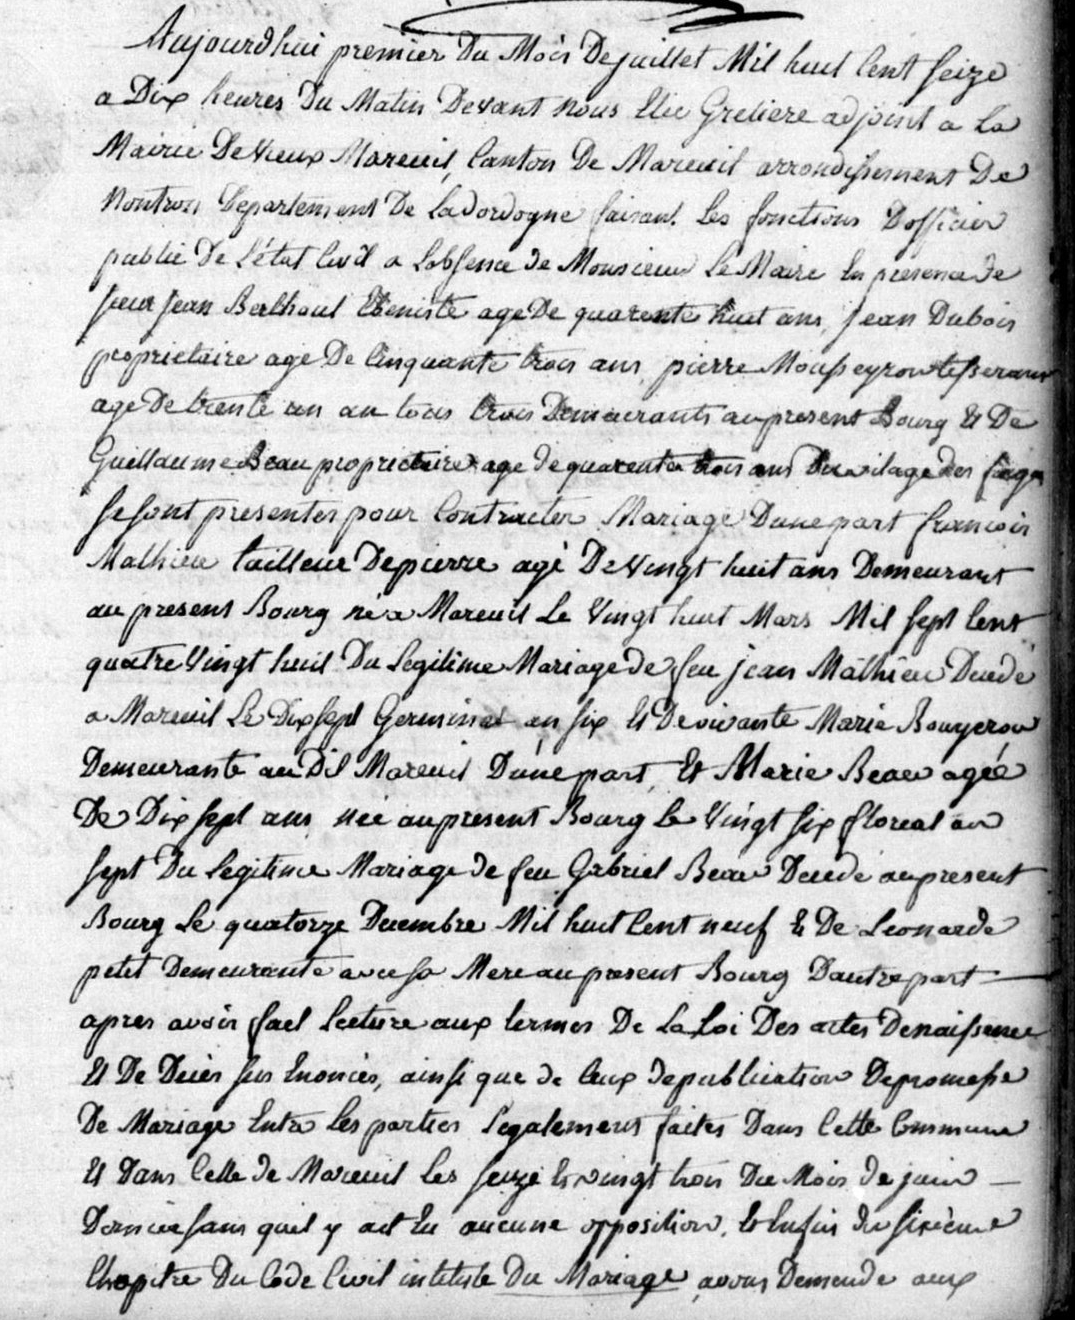 Aujourdhui premier Du Mois De juillet Mil huit Cent seize
a Dix heures Du Matin Devant nous Elie Greliere adjoint a La
Mairie De Vieux Mareuil, Canton De Mareuil arrondissement De
Nontron Departement De La Dordogne faisant Les fonctions D'officier
public De L'état Civil a L'absence de Monsieur Le Maire En presence de
sieur jean Berthout Ebeniste age De quarente huit ans, jean Dubois
proprietaire age De Cinquante trois ans pierre Mousseyrou tisseran
age De trente un an tous trois Demeurants au present Bourg Et De
Guillaume Beau proprietaire age de quarente trois ans Du vilage des
se sont presenter pour Contracter Mariage Dune part francois
Mathieu tailleur De pierre agé De Vingt huit ans Demeurant
au present Bourg né a Mareuil Le Vingt huit Mars Mil sept Cent
quatre Vingt huit Du Legitime Mariage de feu jean Mathieu Decedé
a Mareuil Le Dix sept Germinal an six Et De vivante Marie Bougerou
Demeurante au Dit Mareuil D'une part, Et Marie Beau agée
De Dix sept ans née au present Bourg Le Vingt six floreal an
sept Du Legitime Mariage de feu Gabriel Beau Decede au present
Bourg Le quatorze Decembre Mil huit Cent neuf & De Leonarde
petit Demeurante avec sa Mere au present Bourg Dautre part
apres avoir fait Lecture aux termes De La Loi Des actes De naissence
Et De Decès sus Enoncés, ainsi que de Ceux de publication De promesse
De Mariage Entre Les parties Legalement faites Dans Cette Commune
Et Dans Celle de Mareuil Les seize & vingt trois Du Mois de juin
Dernier sans quil y ait Eu aucune opposition, & Enfin Du sixieme
Chapitre Du Code Civil intitulé Du Mariage, avons Demende aux